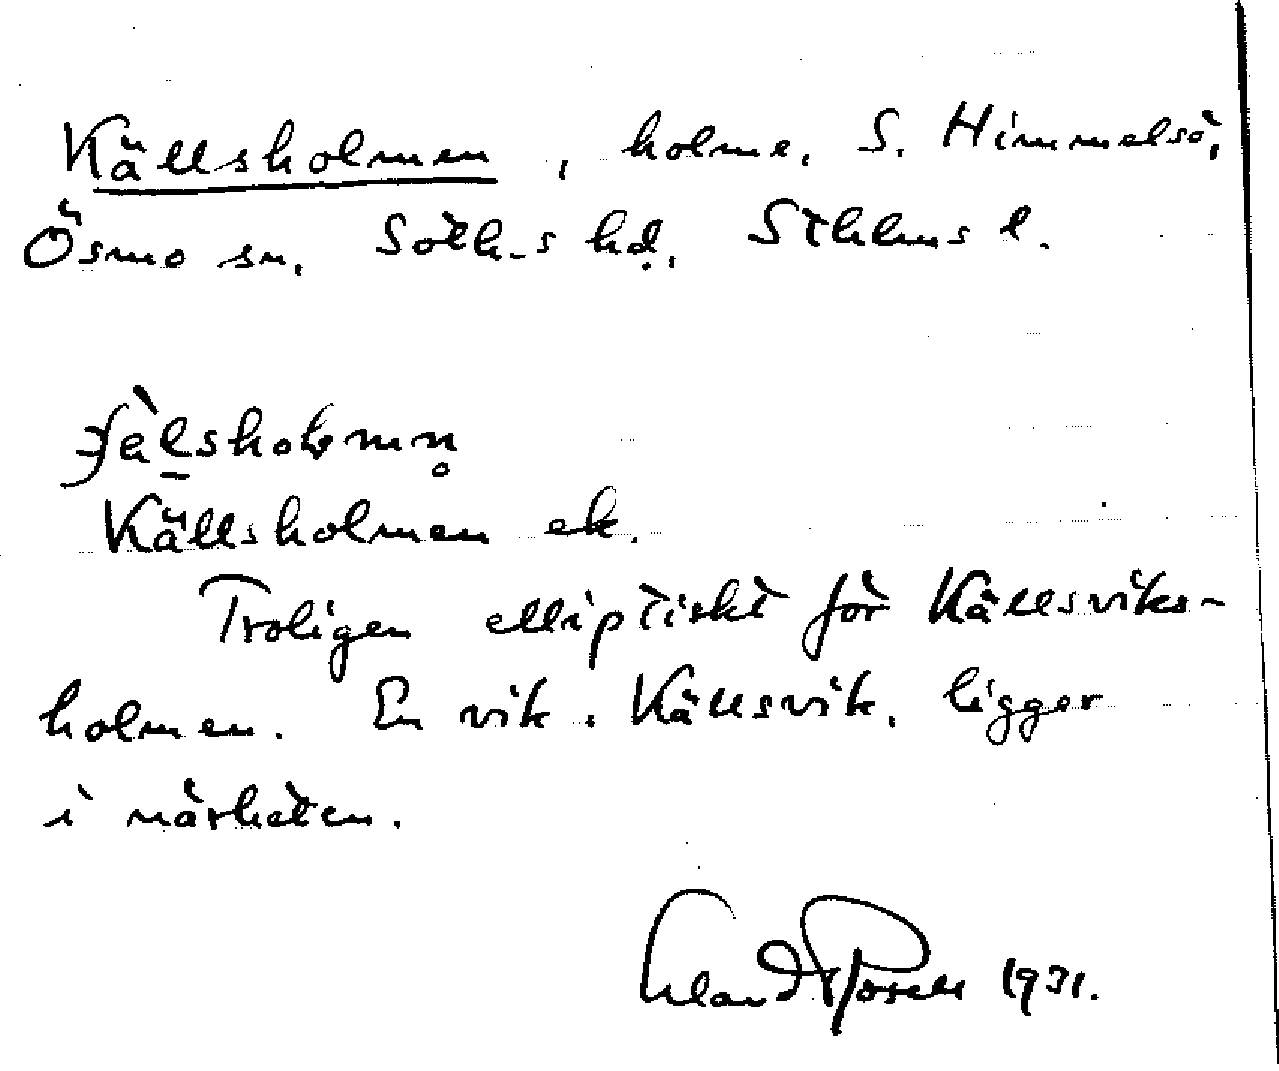 Källsholmen, holme, S. Himmelsö,
Ösmo sn, Soth-s hd, Sthlms l.
Källsholmen ek.
Troligen elliptiskt för Källsviks-
holmen. En vik, Källsvik, ligger
i närheten.
1931.